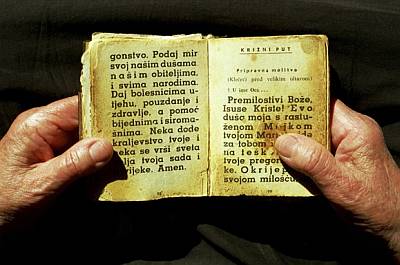 gonstvo. Podaj mir
svoj našim dušama
našim obiteljima,
i svima narodima.
Daj bolesnicima u-
tjehu, pouzdanje i
zdravlje, a pomoć
bijednima i siroma-
šnima. Neka dođe
kraljevstvo tvoje i
neka se vrši sveta
volja tvoja sada i
vijeke. Amen.
KRIŽNI PUT
Pripravna molitva
(Klečeći pred velikim oltarom)
U ime Oca . . .
Premilostivi Bože,
Isuse Kriste! Evo
dušo moja s rastu-
ženom Majkom
tvojom
za tobom i
na
tvoje
Okrijepi
svojom milošću